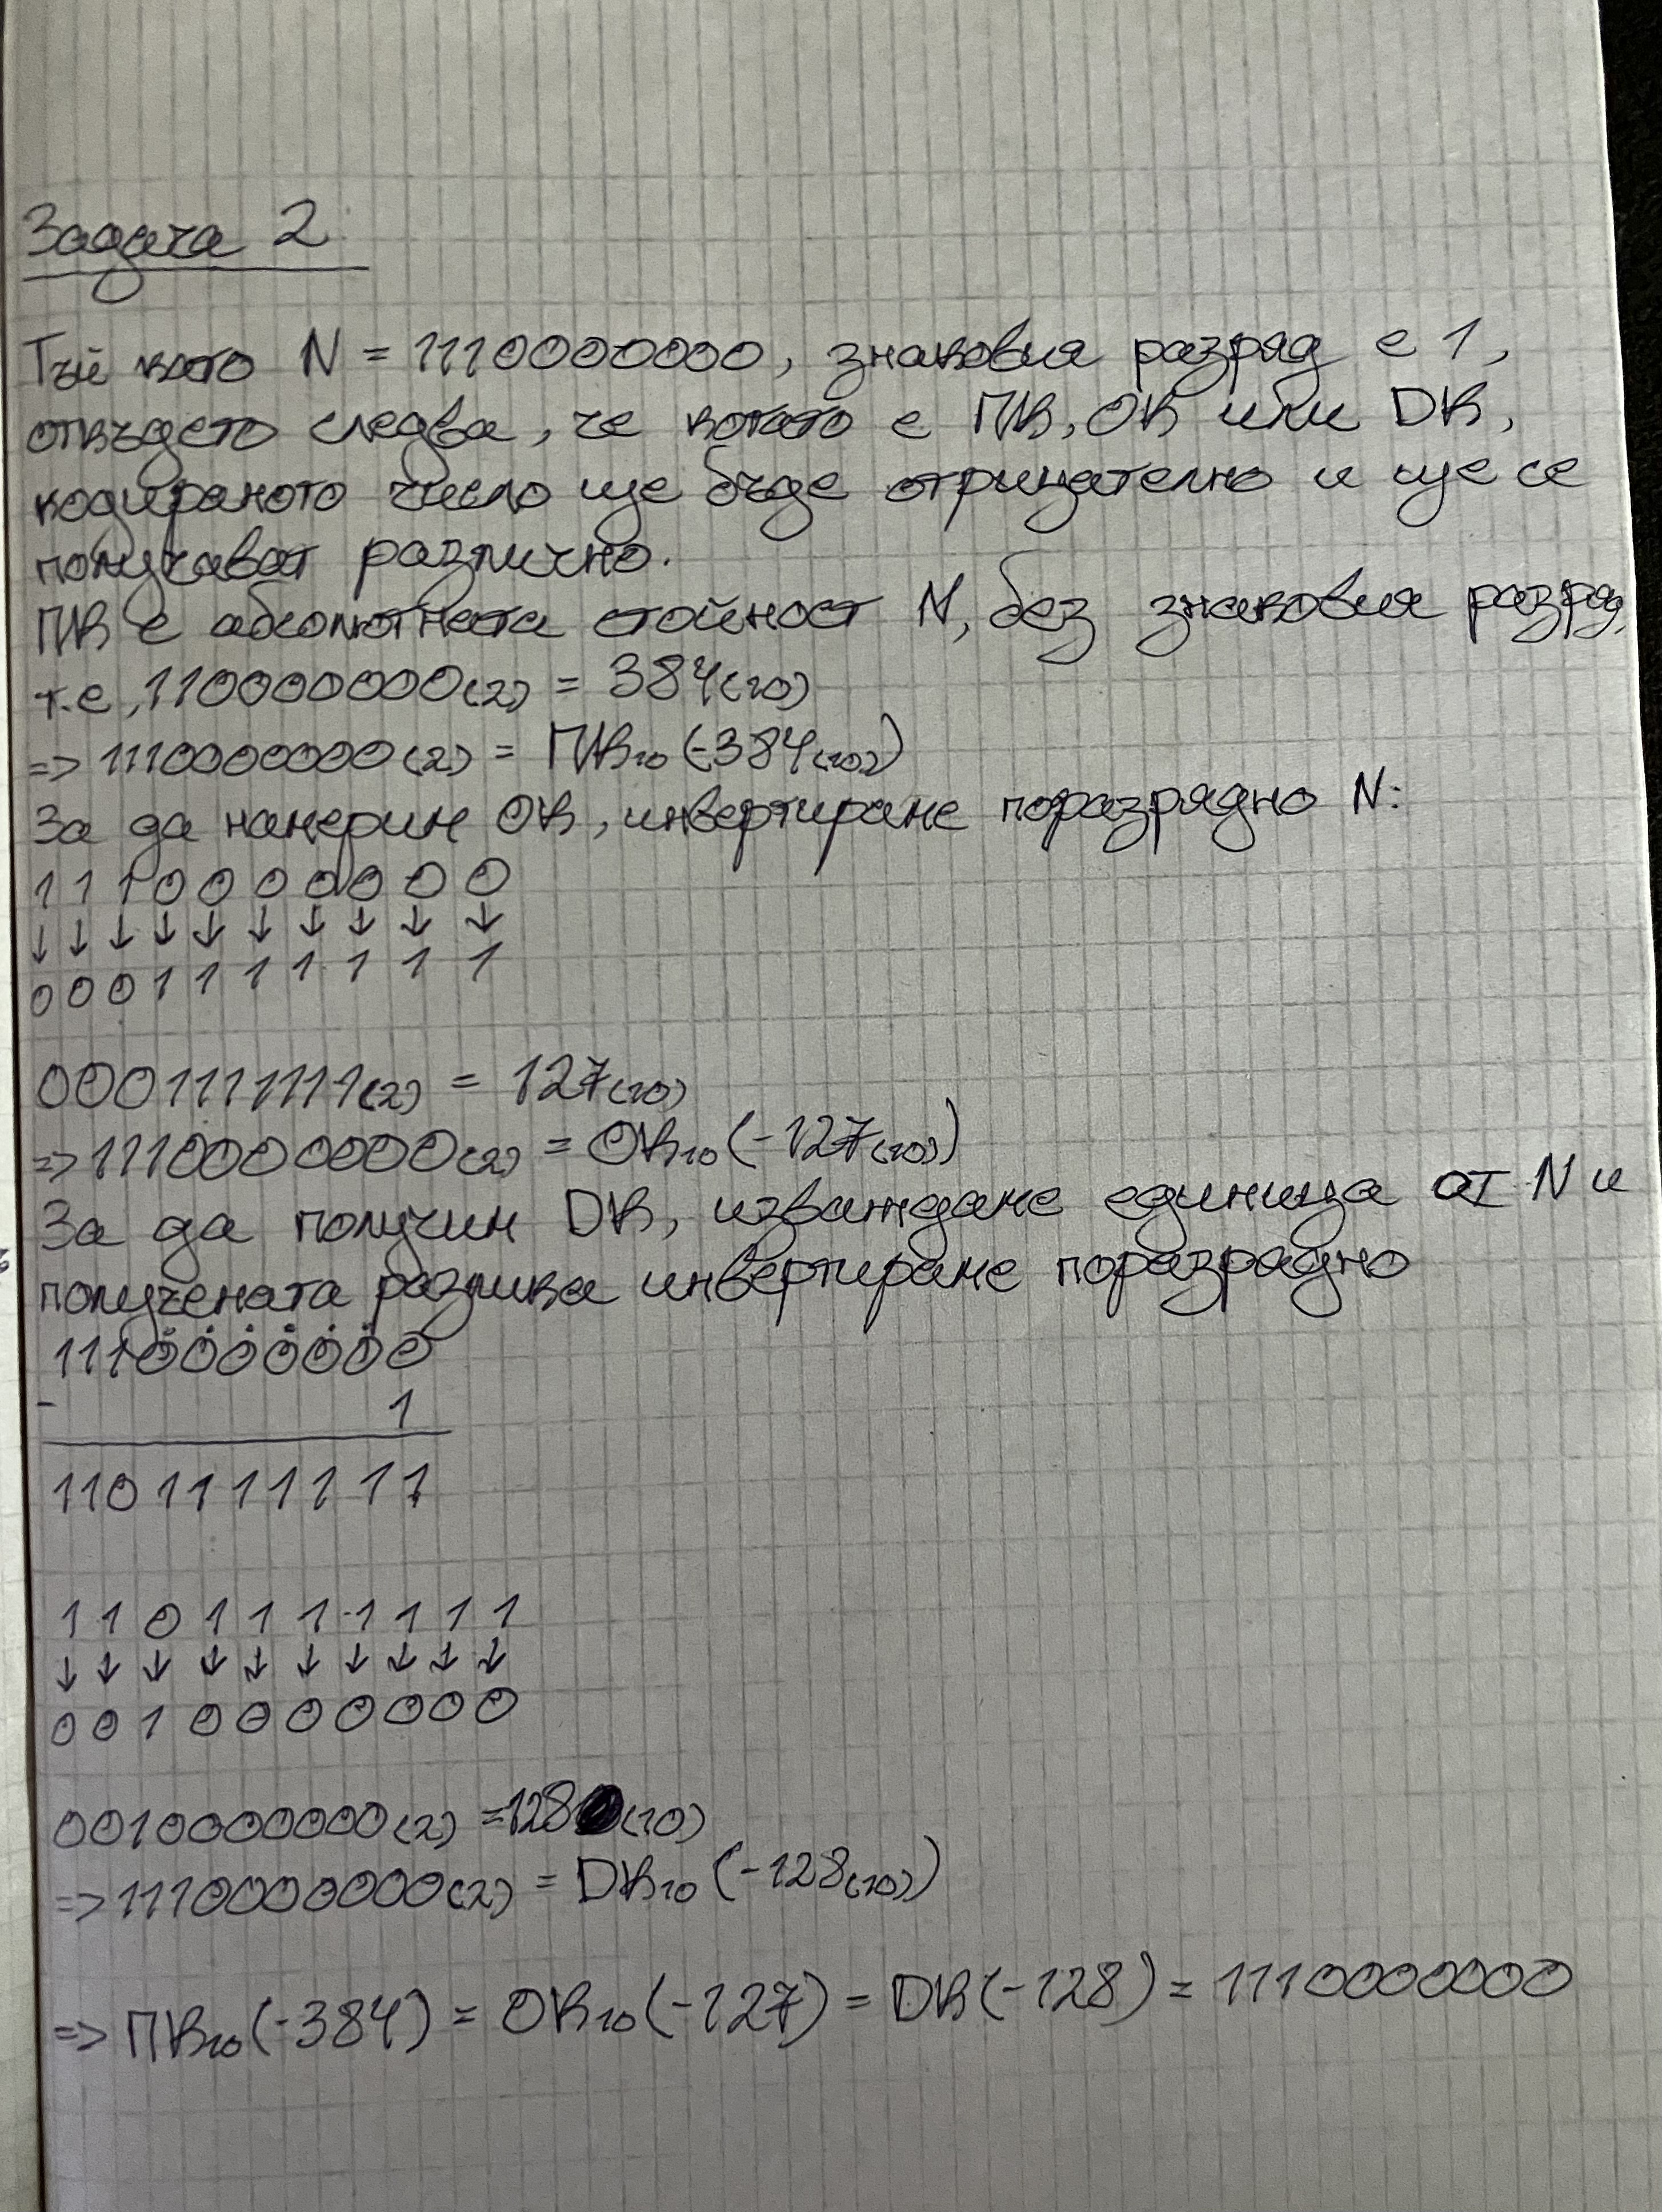 Задача 2
Тъй като N = 1110000000, знаковия разряд е 1,
откъдето следва, че когато е ПК, ОК или DK,
кодираното число ще бъде отрицателно и ще се
получават различно.
ПК е абсолютната стойност N, без знаковия разряд,
т.е, 110000000(2) = 384(10)
=> 1110000000(2) = ПК10 (-384(10))
За да намерим ОК, инвертираме поразрядно N:
1 1 1 0 0 0 0 0 0 0
↓ ↓ ↓ ↓ ↓ ↓ ↓ ↓ ↓ ↓
0 0 0 1 1 1 1 1 1 1
0001111111(2) = 127(10)
=> 1110000000(2) = ОК10 (-127(10))
За да получим DK, изваждаме единица от N и
получената разлика инвертираме поразрадно
1110000000
- 1
1101111111
1 1 0 1 1 1 1 1 1 1
↓ ↓ ↓ ↓ ↓ ↓ ↓ ↓ ↓ ↓
0 0 1 0 0 0 0 0 0 0
0010000000(2) = 128(10)
=> 1110000000(2) = DK10 (-128(10))
=> ПК10 (-384) = ОК10 (-127) = DK (-128) = 1110000000